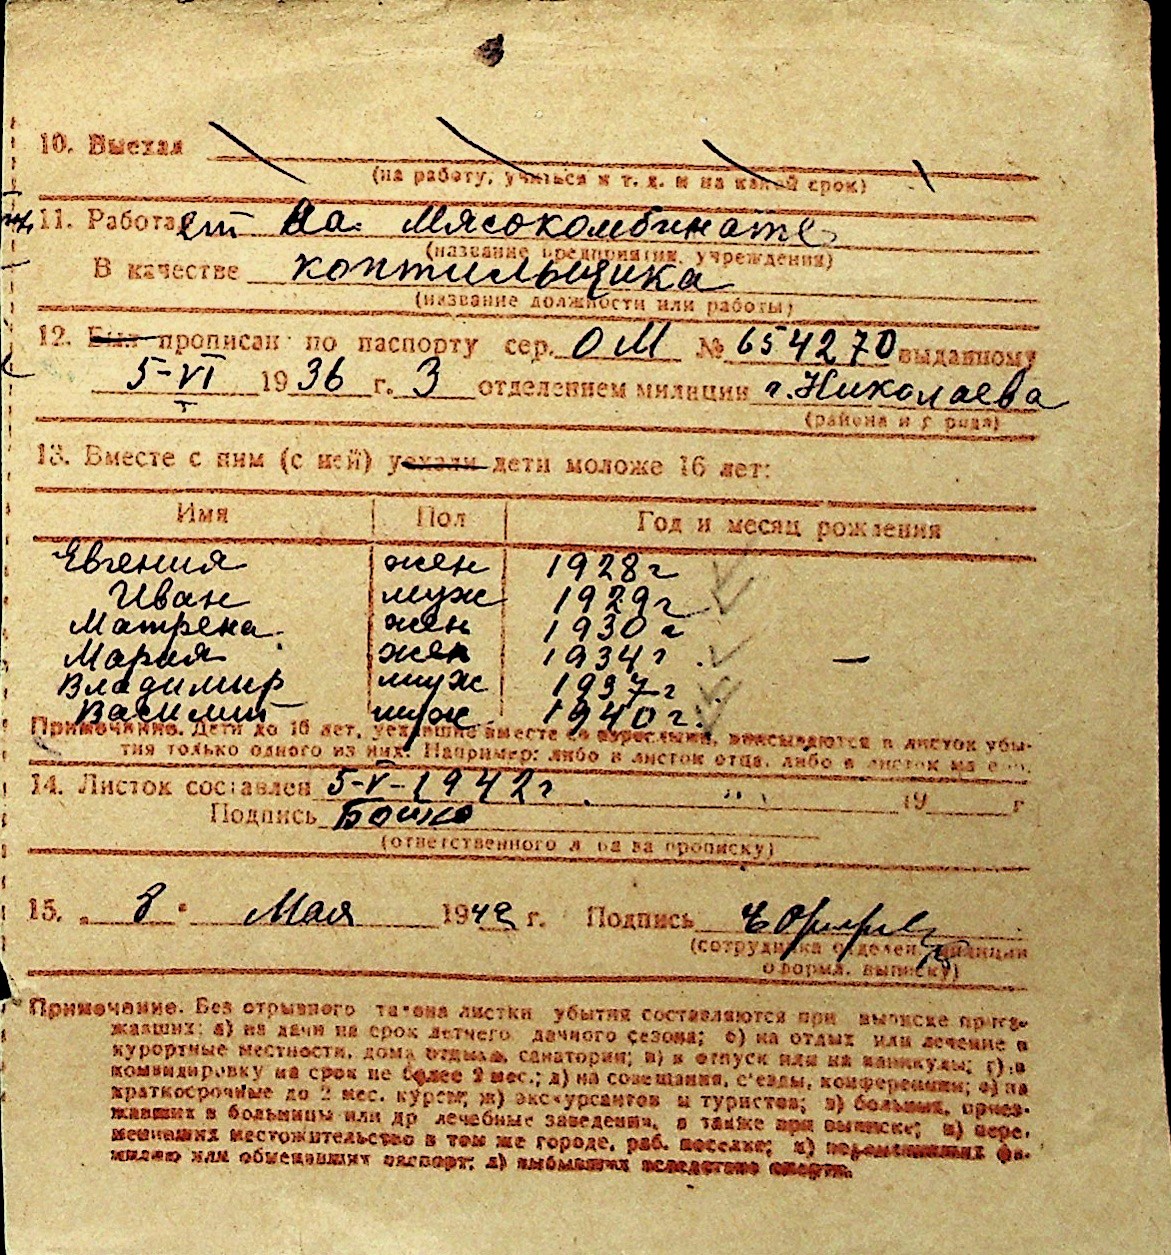 10. Выехал
(на работу, учиться и т. д. и на какой срок)
11. Работает на Мясокомбинате
(название предприятия, учреждения)
В качестве коптильщика
(название должности или работы)
12. Был прописан по паспорту сер. ОМ № 654270 выданному
5-VI 1936 г. 3 отделением милиции г. Николаева
(района и города)
13. Вместе с ним (с ней) уехали дети моложе 16 лет:
Имя Пол Год и месяц рождения
Евгения жен 1928 г
Иван муж 1929 г
Матрена жен 1930 г
Мария жен 1934 г. —
Владимир муж 1937 г
Василий муж 1940 г.
Примечание. Дети до 16 лет, уехавшие вместе со взрослыми, вписываются в листок убы-
тия только одного из них. Например: либо в листок отца, либо в листок
14. Листок составлен 5-V-1942 г 19 г
Подпись Бошко
(ответственного лица за прописку)
15. „ 8 " Мая 1942 г. Подпись
(сотрудника отделен. милиции
оформл. выписку)
Примечание. Без отрывного талона листки убытия составляются при выписке приез-
жавших: а) на дачи на срок летнего дачного сезона; б) на отдых или лечение в
курортные местности, дома отдыха, санатории; в) в отпуск или на каникулы; г) в
командировку на срок не более 2 мес.; д) на совещания, с'езды, конференции; е) на
краткосрочные до 2 мес. курсы; ж) экскурсантов и туристов; з) больных, приез-
жавших в больницы или др лечебные заведения, а также при выписке; и) пере-
менивших местожительство в том же городе, раб. поселке; к) переменивших фа-
милию или обменявших паспорт; л) выбывших вследствие смерти.